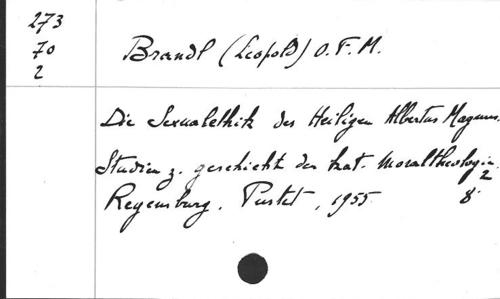 273
70
2
Brandl (Leopold) O.F.M.
Die Sexualethik des Heiligen Albertus Magnus.
Studien z. geschicht der kat. Moraltheologie. 2
Regensburg, Pustet, 1955 8°